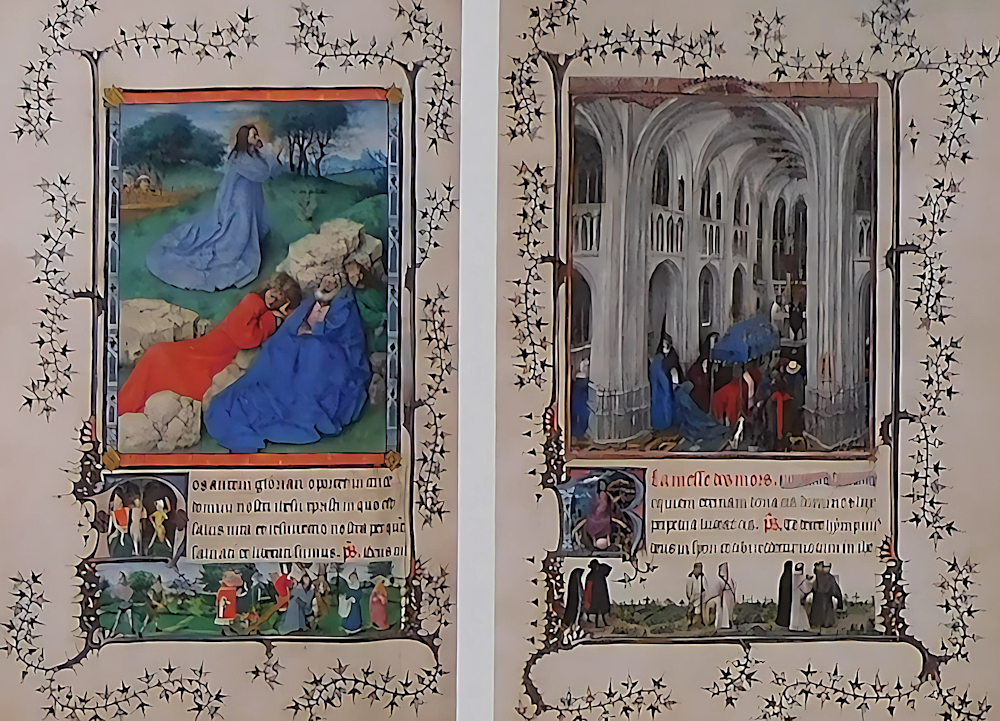 os autem gloriari oportet in cruce
domini nostri in quo est
salus vita et resurrectio nostra per que
saluati et liberati sumus. ps.
La messe des mors.
equiem eternam dona eis domine et lux
perpetua luceat eis. ps. Te decet hympnus
deus in syon et tibi reddetur votum in ihe